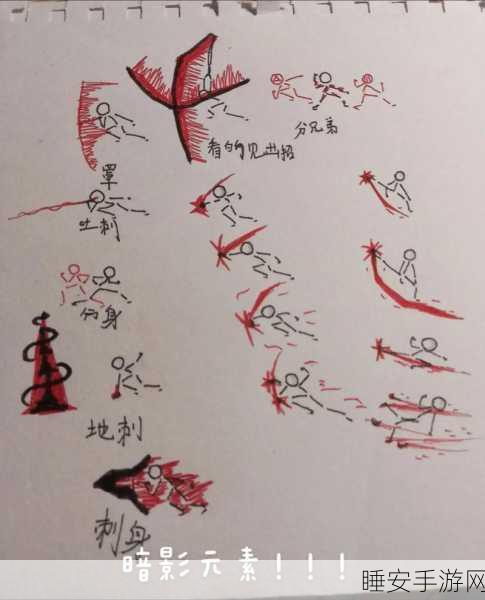 分兄弟
看的见出招
罩
吐刺
分身
地刺
刺身
暗影元素！！！
睡安手游网